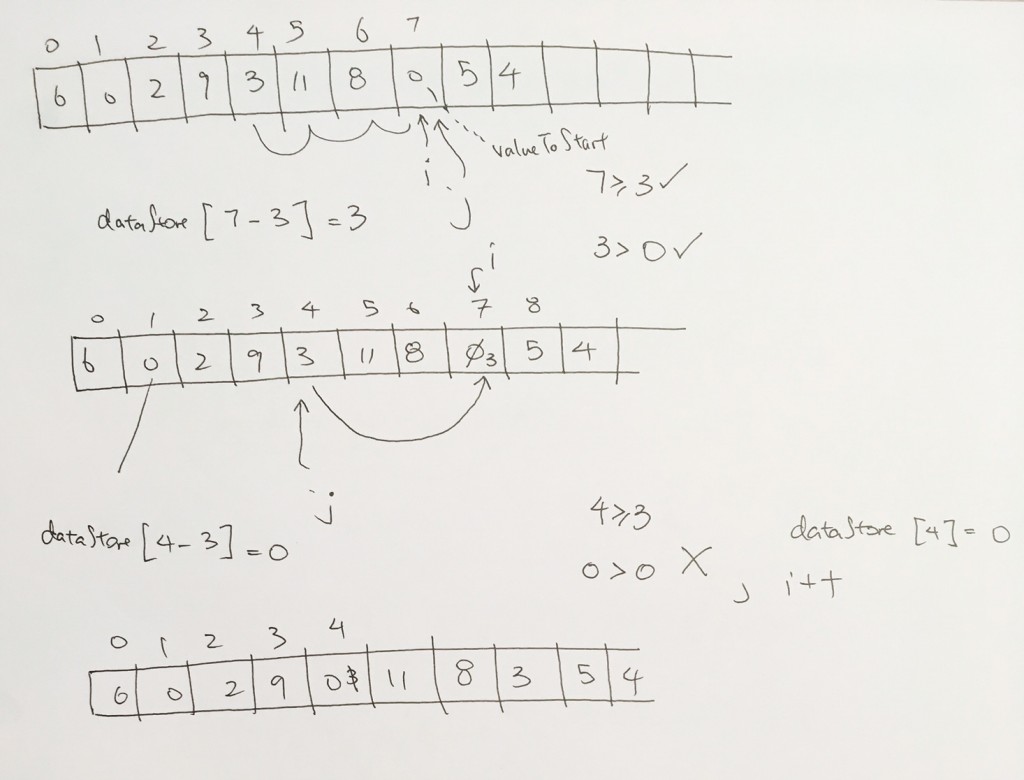 0 1 2 3 4 5 6 7
6 0 2 9 3 11 8 0 5 4
valueToStart
i
j
7 ⩾ 3 ✓
dataStore [ 7 - 3 ] = 3
3 > 0 ✓
i
0 1 2 3 4 5 6 7 8
6 0 2 9 3 11 8 0 3 5 4
j
4 ⩾ 3
dataStore [ 4 - 3 ] = 0
0 > 0 X , i++
dataStore [4] = 0
0 1 2 3 4
6 0 2 9 0 3 11 8 3 5 4